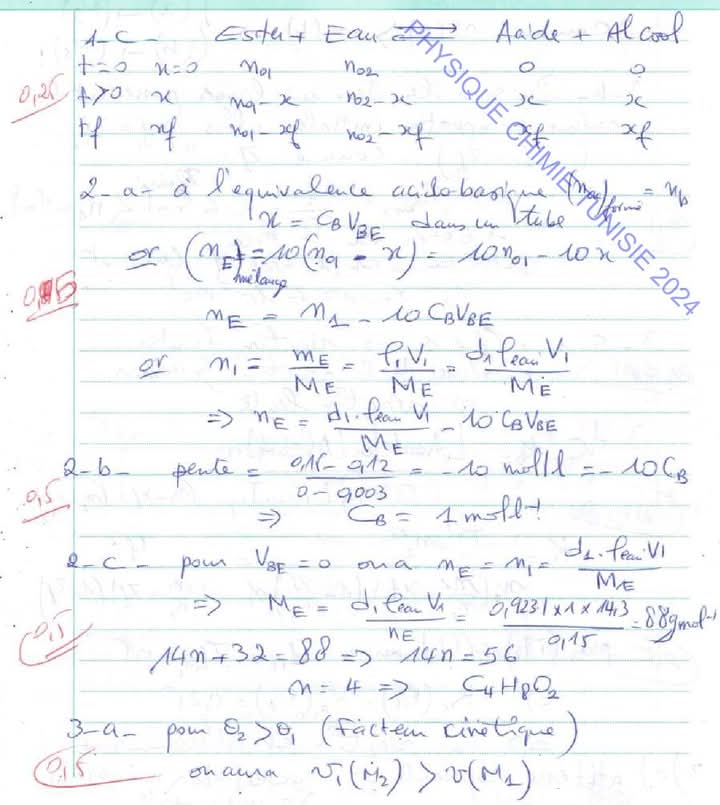 1-c- Ester + Eau ⇌ Acide + Alcool
t=0 x=0 n01 n02 0 0
0,25
t>0 x n01-x n02-x x x
tf xf n01-xf n02-xf xf xf
PHYSIQUE CHIMIE TUNISIE 2024
2-a- à l'équivalence acido-basique (nac)formé = nb
x = CBVBE dans un tube
or (nE)mélange = 10(n01 - x) = 10n01 - 10x
nE = n1 - 10CBVBE
or n1 = mE/ME = ρ1V1/ME = d1ρeauV1/ME
⇒ nE = d1·ρeauV1/ME - 10CBVBE
2-b- pente = (0,15-0,12)/(0-0,003) = -10 mol/l = -10CB
0,5
⇒ CB = 1 mol l-1
2-c- pour VBE=0 on a nE = n1 = d1·ρeauV1/ME
⇒ ME = d1ρeauV1/nE = (0,9231x1x14,3)/0,15 = 88g mol-1
0,5
14n+32=88 ⇒ 14n=56
n=4 ⇒ C4H8O2
3-a- pour θ2>θ1 (facteur cinétique)
0,5
on aura v1(M2) > v(M1)